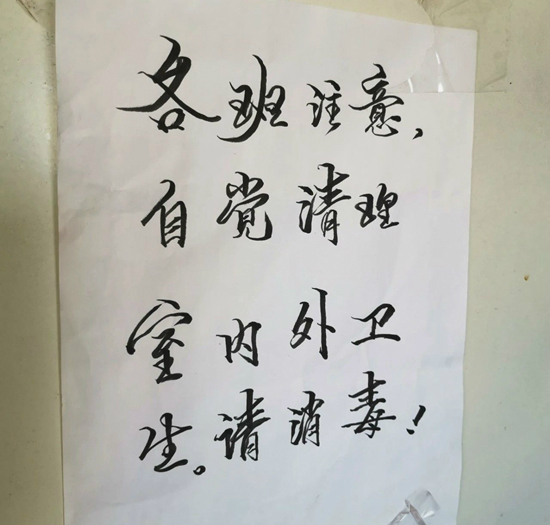 各班注意,
自觉清理
室内外卫
生。请消毒!